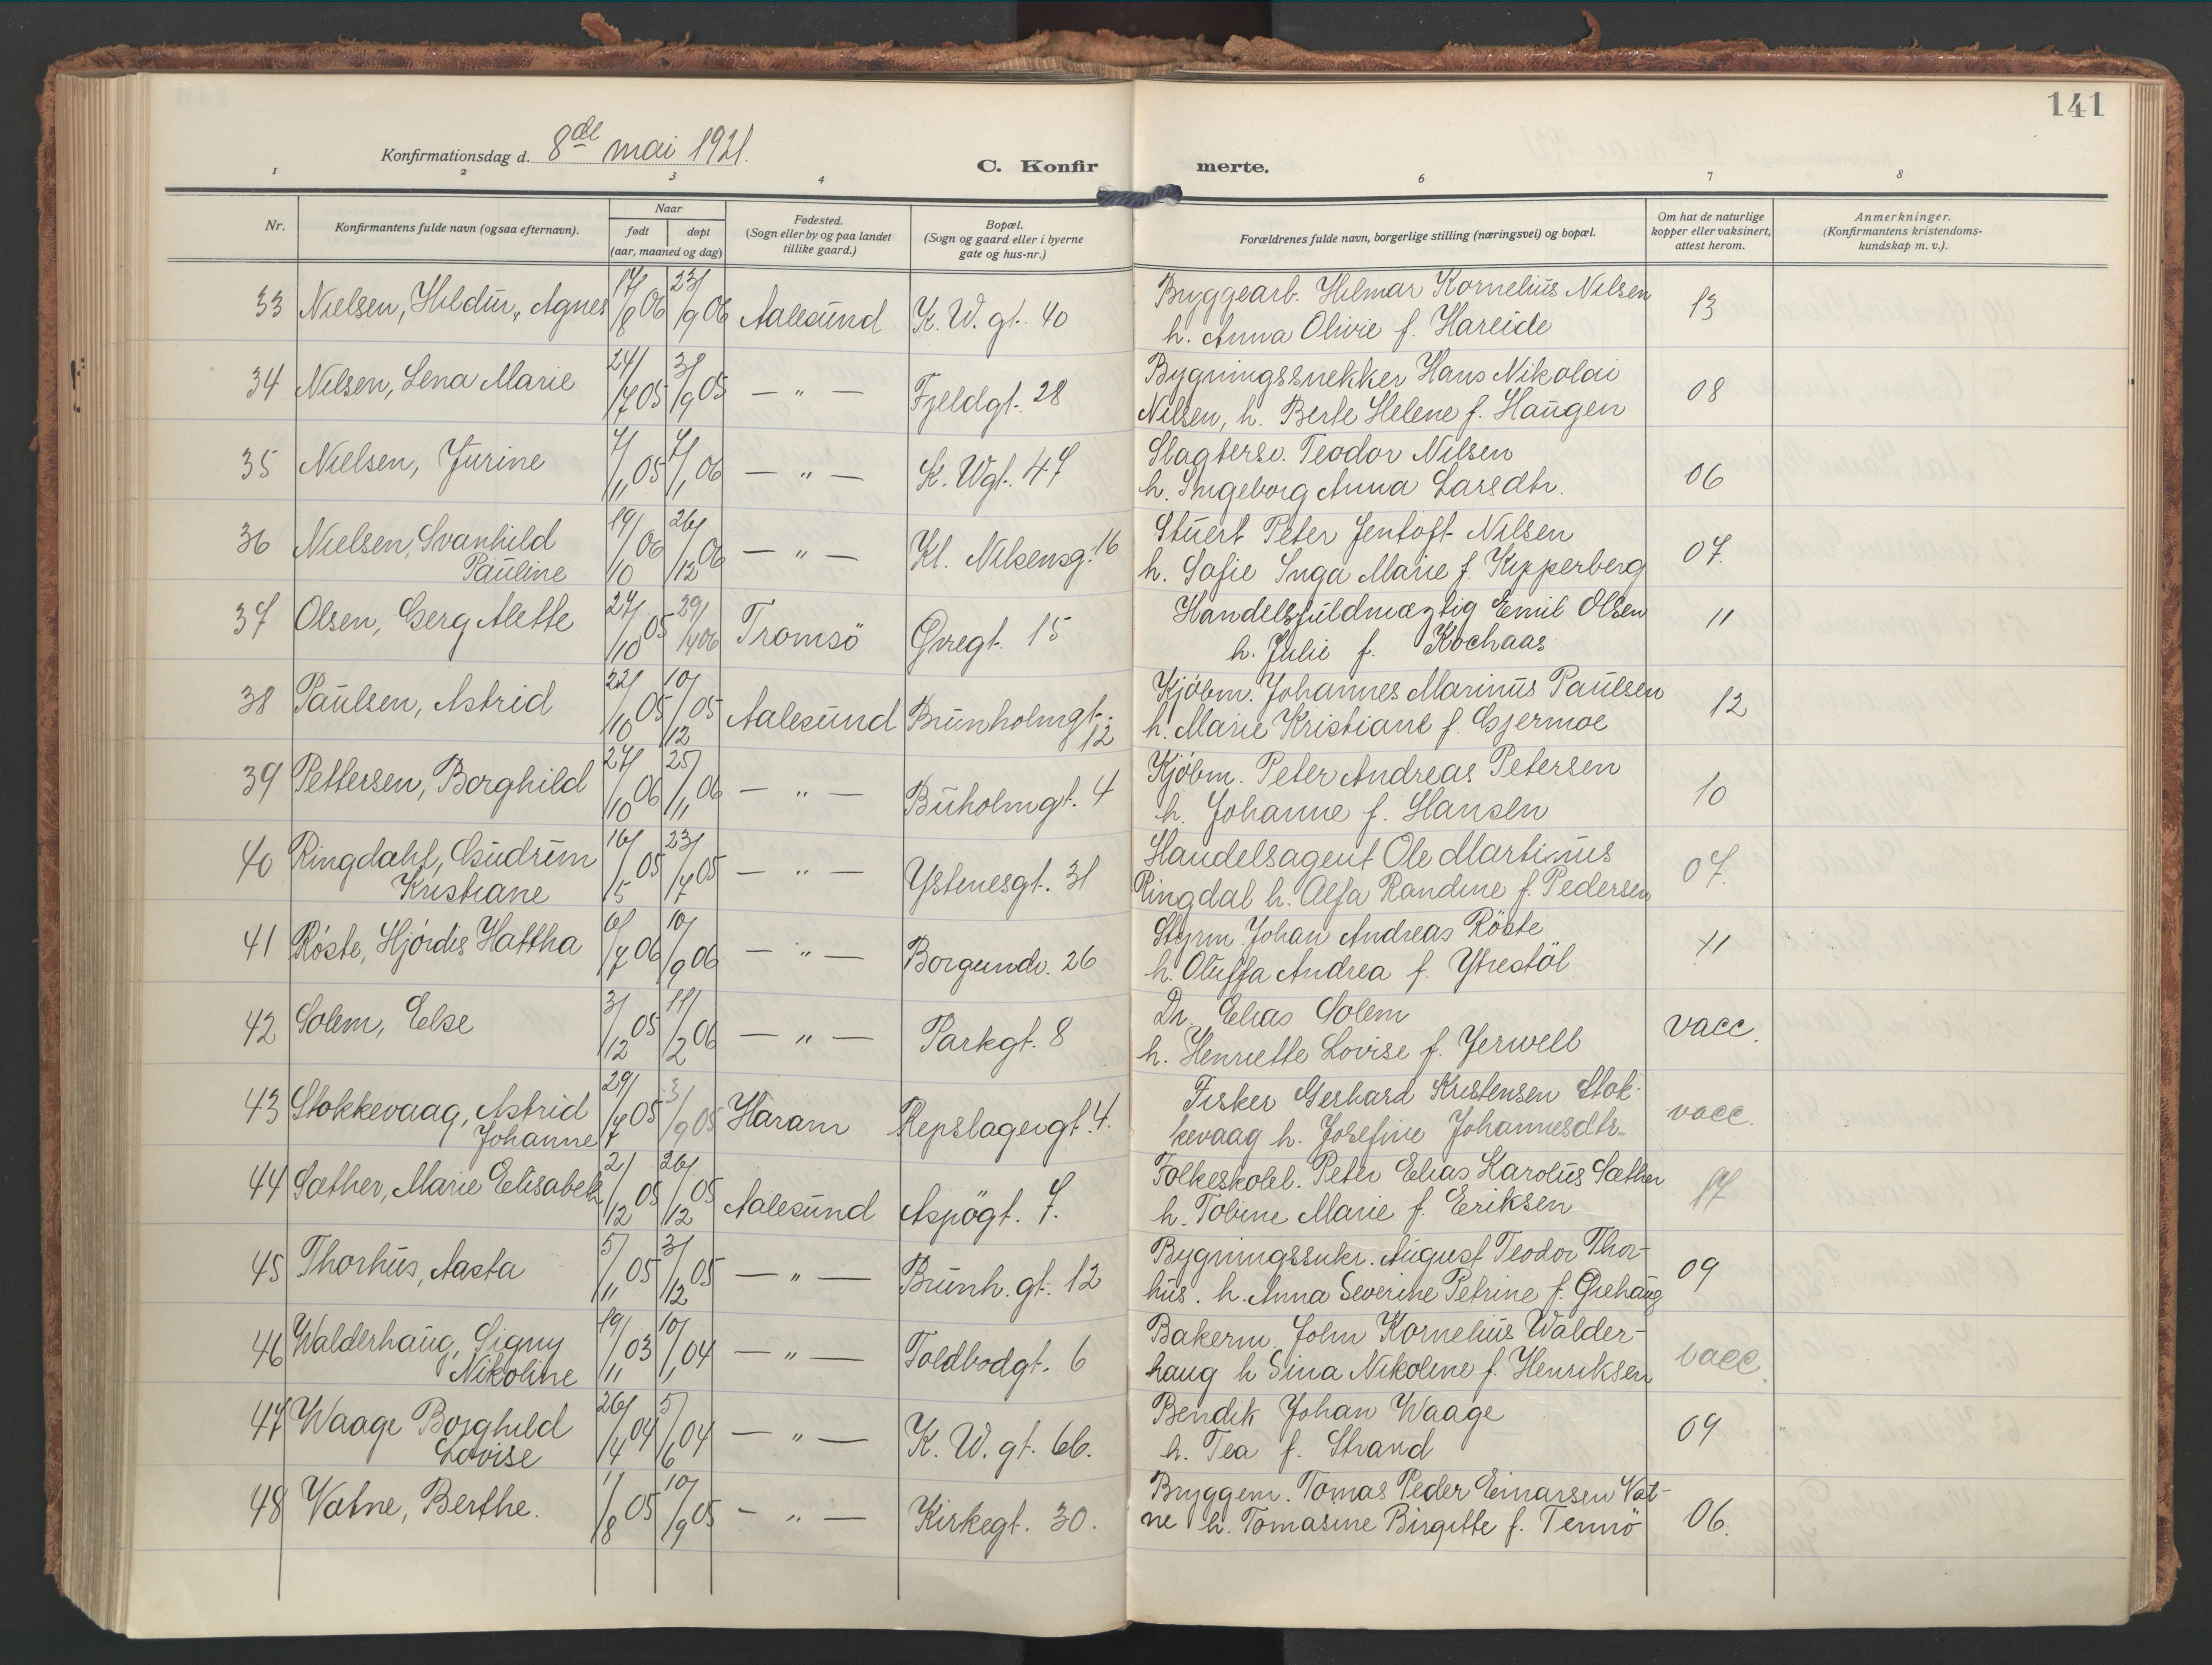 141
Konfirmationsdag d. 8de mai 1921.
C. Konfir merte.
1 2 3 4 6 7 8
Nr.
Konfirmantens fulde navn (ogsaa efternavn).
Naar
født døpt
(aar, maaned og dag)
Fødested.
(Sogn eller by og paa landet
tillike gaard.)
Bopæl.
(Sogn og gaard eller i byerne
gate og hus-nr.)
Forældrenes fulde navn, borgerlige stilling (næringsvei) og bopæl.
Om hat de naturlige
kopper eller vaksinert,
attest herom.
Anmerkninger.
(Konfirmantens kristendoms-
kundskap m. v.).
33 Nielsen, Hildur, Agnes 17/8 06 23/9 06 Aalesund K. W. gt. 40 Bryggearb. Hilmar Kornelius Nilsen 13
h. Anna Olivie f. Hareide
34 Nilsen, Lena Marie 24/7 05 3/9 05 — „ — Fjeldgt. 28 Bygningssnekker Hans Nikolai 08
Nilsen, h. Berte Helene f. Haugen
35 Nielsen, Jurine 7/11 05 7/1 06 — „ — K. Wgt. 47 Slagtersv. Teodor Nilsen 06
h. Ingeborg Anna Larsdtr.
36 Nielsen, Svanhild 19/10 06 26/12 06 — „ — Kl. Nilsensg. 16 Stuert Peter Jentoft Nilsen 07.
Pauline h. Sofie Inga Marie f. Kipperberg
37 Olsen, Gerg Alette 27/10 05 29/4 06 Tromsö Gvregt. 15 Handelsfuldmægtig Emil Olsen 11
h. Julie f. Kochaas
38 Paulsen, Astrid 22/10 05 10/12 05 Aalesund Brunholmgt. 12 Kjöbm. Johannes Marinus Paulsen 12
h. Marie Kristiane f. Gjermoe
39 Pettersen, Borghild 27/10 06 25/11 06 — „ — Buholmgt. 4 Kjöbm. Peter Andreas Petersen 10
h. Johanne f. Hansen
40 Ringdahl, Gudrun 16/5 05 23/7 05 — „ — Ystenesgt. 31 Handelsagent Ole Martinus 07.
Kristiane Ringdal h. Alfa Randine f. Pedersen
41 Röste, Hjördis Hattha 6/7 06 10/9 06 — „ — Borgundv. 26 Styrm. Johan Andreas Röste 11
h. Oluffa Andrea f. Ytrestöl
42 Solem, Else 3/12 05 11/2 06 — „ — Parkgt. 8 Dr. Elias Solem vacc.
h. Henriette Lovise f. Jerwell
43 Stokkevaag, Astrid 29/7 05 3/9 05 Haram Repslagergt. 4. Fisker Gerhard Kristensen Stok- vacc.
Johanne kevaag h. Josefine Johannesdtr.
44 Sæther, Marie Elisabeth 2/12 05 26/12 05 Aalesund Aspögt. 7. Folkeskolel. Peter Elias Karolus Sæther 17
h. Tobine Marie f. Eriksen
45 Thorhus, Aasta 5/11 05 3/12 05 — „ — Brunh. gt. 12 Bygningssnkr. August Teodor Thor- 09
hus. h. Anna Severine Petrine f. Grehaug
46 Walderhaug, Signy 19/11 03 10/1 04 — „ — Toldbodgt. 6 Bakerm. John Kornelius Walder- vacc.
Nikoline haug h Sina Nikoline f. Henriksen
47 Waage Borghild 26/4 04 5/6 04 — „ — K. W. gt. 66. Bendik Johan Waage 09
Lovise h. Tea f. Strand
48 Vatne, Berthe. 1/8 05 10/9 05 — „ — Kirkegt. 30. Bryggem. Tomas Peder Einarsen Vat- 06.
ne h. Tomasine Birgitte f. Tennö